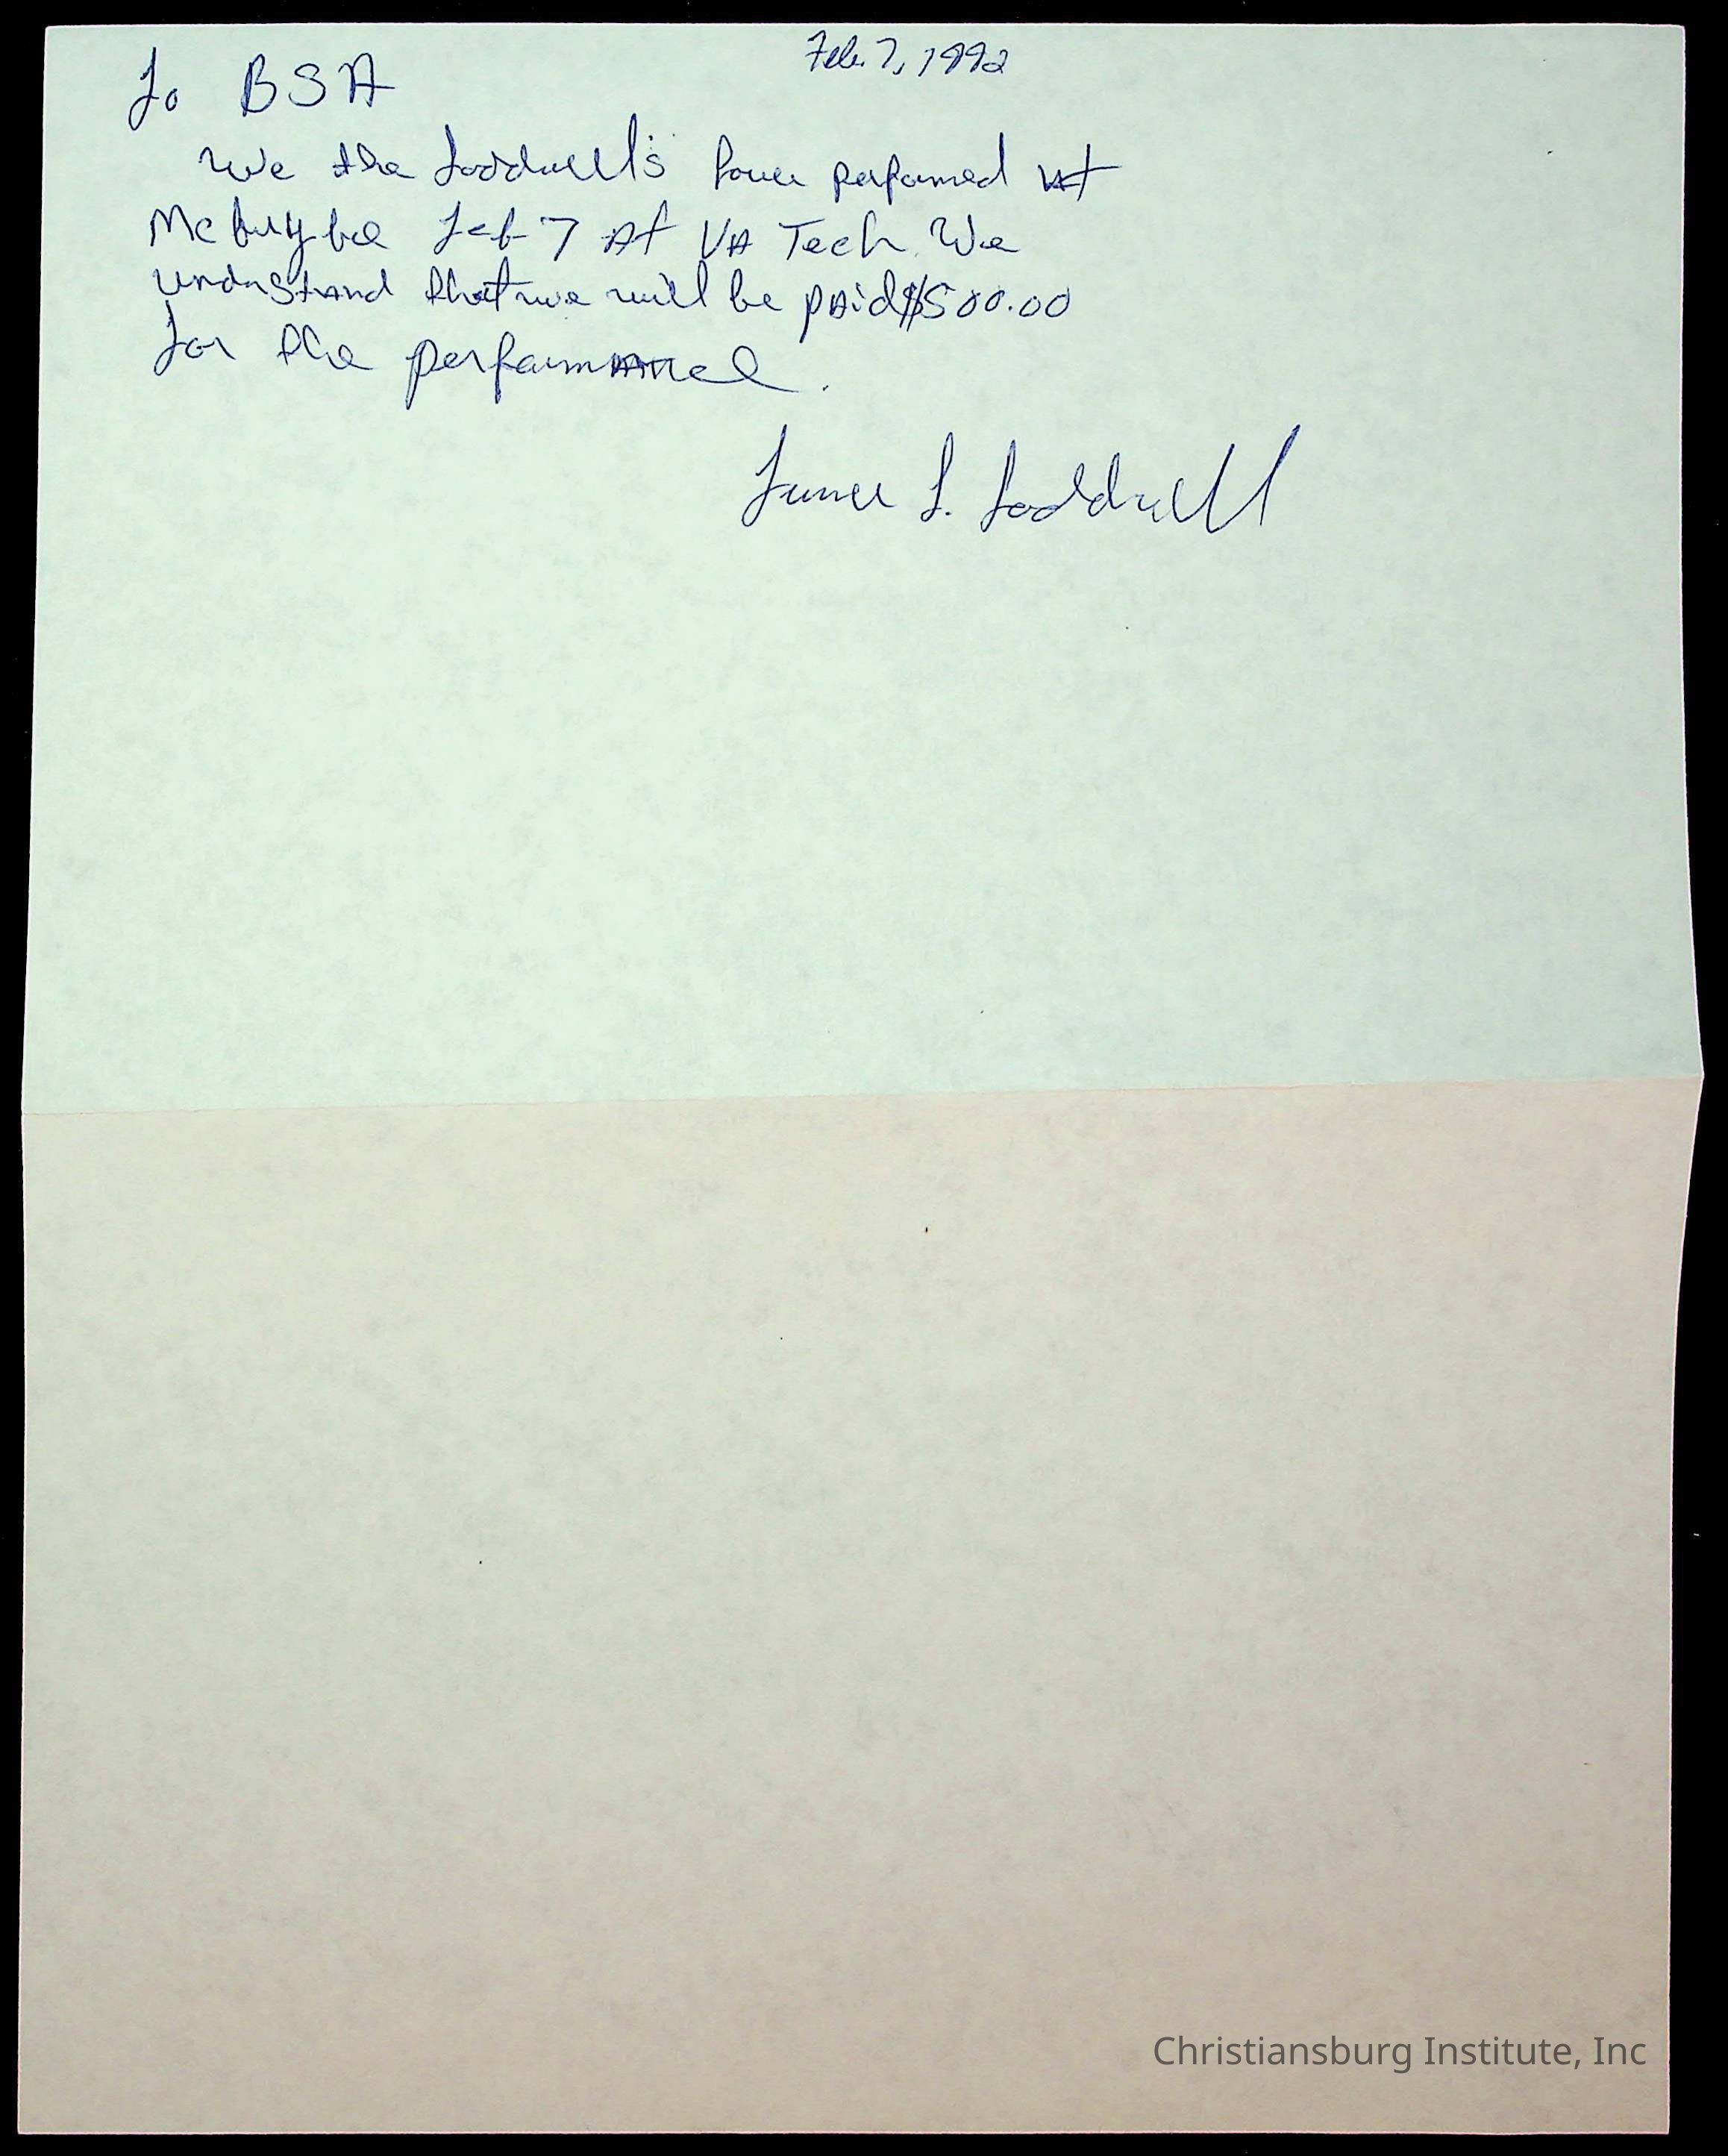 Feb. 7, 1992
To BSA
We the Taddwell's have performed at
McBryde Feb 7 At VA Tech. We
understand that we will be paid $500.00
for the performance.
L. Taddwell
Christiansburg Institute, Inc